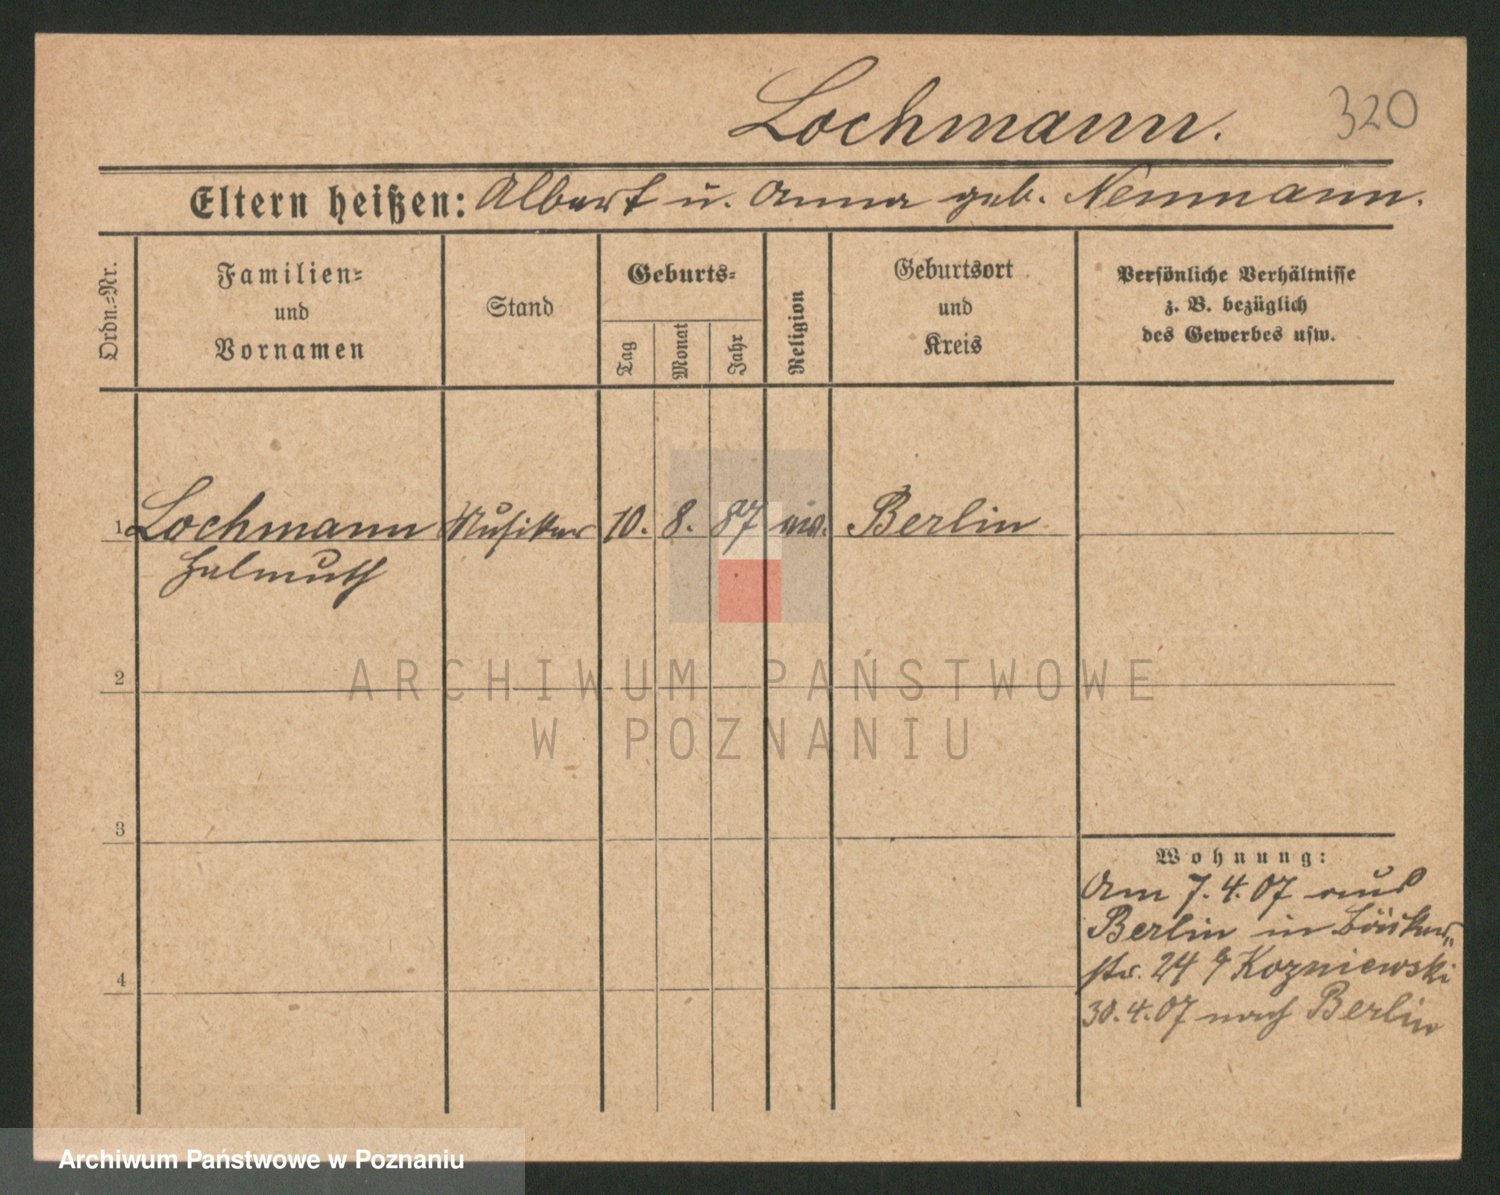 Lochmann. 320
Eltern heißen: Albert u. Anna geb. Neumann.
Ordn.=Nr.
Familien=
und
Vornamen
Stand
Geburts=
Tag
Monat
Jahr
Religion
Geburtsort
und
Kreis
Persönliche Verhältnisse
z. B. bezüglich
des Gewerbes usw.
1 Lochmann Musiker 10. 8. 87 Berlin
Helmuth
2
3
4
Wohnung:
Am 7.4.07 aus
Berlin in Bäcker„
str. 24 Kozniewski
30.4.07 nach Berlin
ARCHIWUM PAŃSTWOWE
W POZNANIU
Archiwum Państwowe w Poznaniu